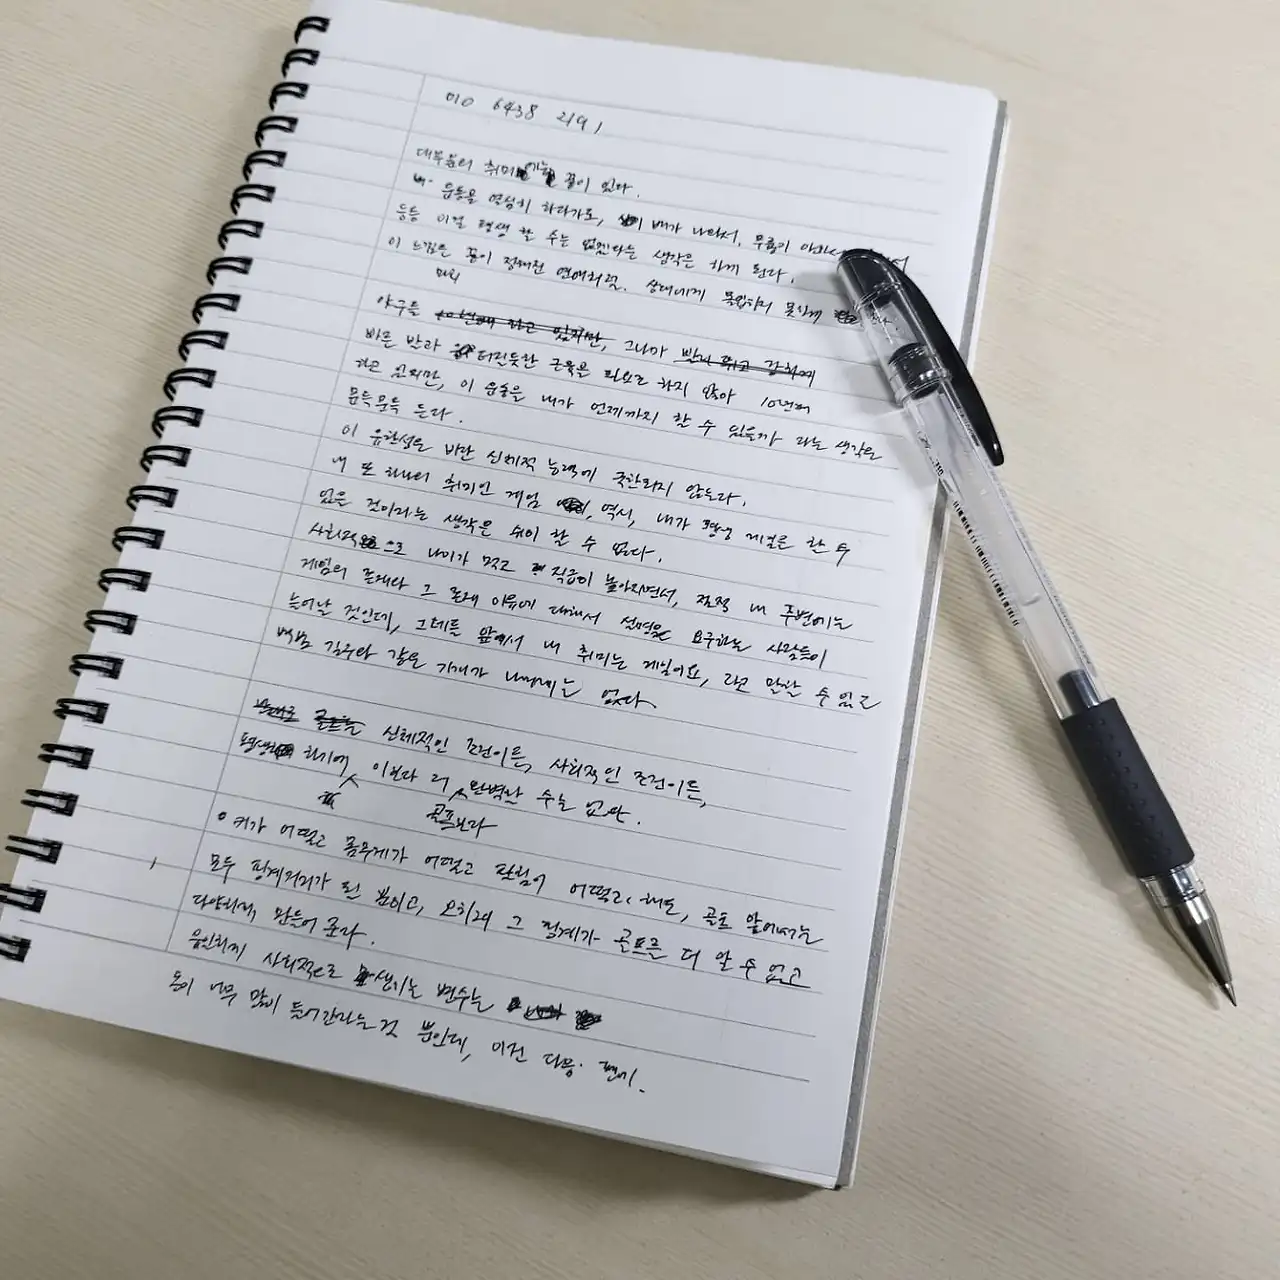 010 6438 2191
대부분의 취미에는 끝이 있다.
운동을 열심히 하다가도, 배가 나와서, 무릎이
등등 이걸 평생 할 수는 없겠다는 생각을 하게 된다.
이 느낌은 끝이 정해진 연애처럼. 상대에게 몰입하지 못하게
야구를 10년째 하고 있지만, 그나마 빨리 뛰고 강하게
바른 반과 터질듯한 근육을 필요로 하지 않아 10년째
하곤 있지만, 이 운동을 내가 언제까지 할 수 있을까 라는 생각은
문득문득 든다.
이 유한성은 비단 신체적 능력에 국한되지 않는다.
내 또 하나의 취미인 게임, 역시, 내가 평생 게임을 할 수
있을 것이라는 생각은 쉬이 할 수 없다.
사회적으로 나이가 먹고 직급이 높아지면서, 점점 내 주변에는
게임의 존재나 그 존재 이유에 대해서 설명을 요구하는 사람들이
늘어날 것인데, 그네들 앞에서 내 취미는 게임이요, 라고 말할 수 있는
같은 기개가 나에게는 없다.
골프는 신체적인 조건이든, 사회적인 조건이든,
평생 하기에 이보다 더 완벽할 수는 없다.
골프보다
키가 어떻고 몸무게가 어떻고 팔힘이 어떻고 해도, 골프 앞에서는
모두 핑계거리가 될 뿐이고, 오히려 그 핑계가 골프를 더 알 수 없고
다양하게 만들어 준다.
유일하게 사회적으로 생기는 변수는
돈이 너무 많이 들어간다는 것 뿐인데, 이건 다음 편에.